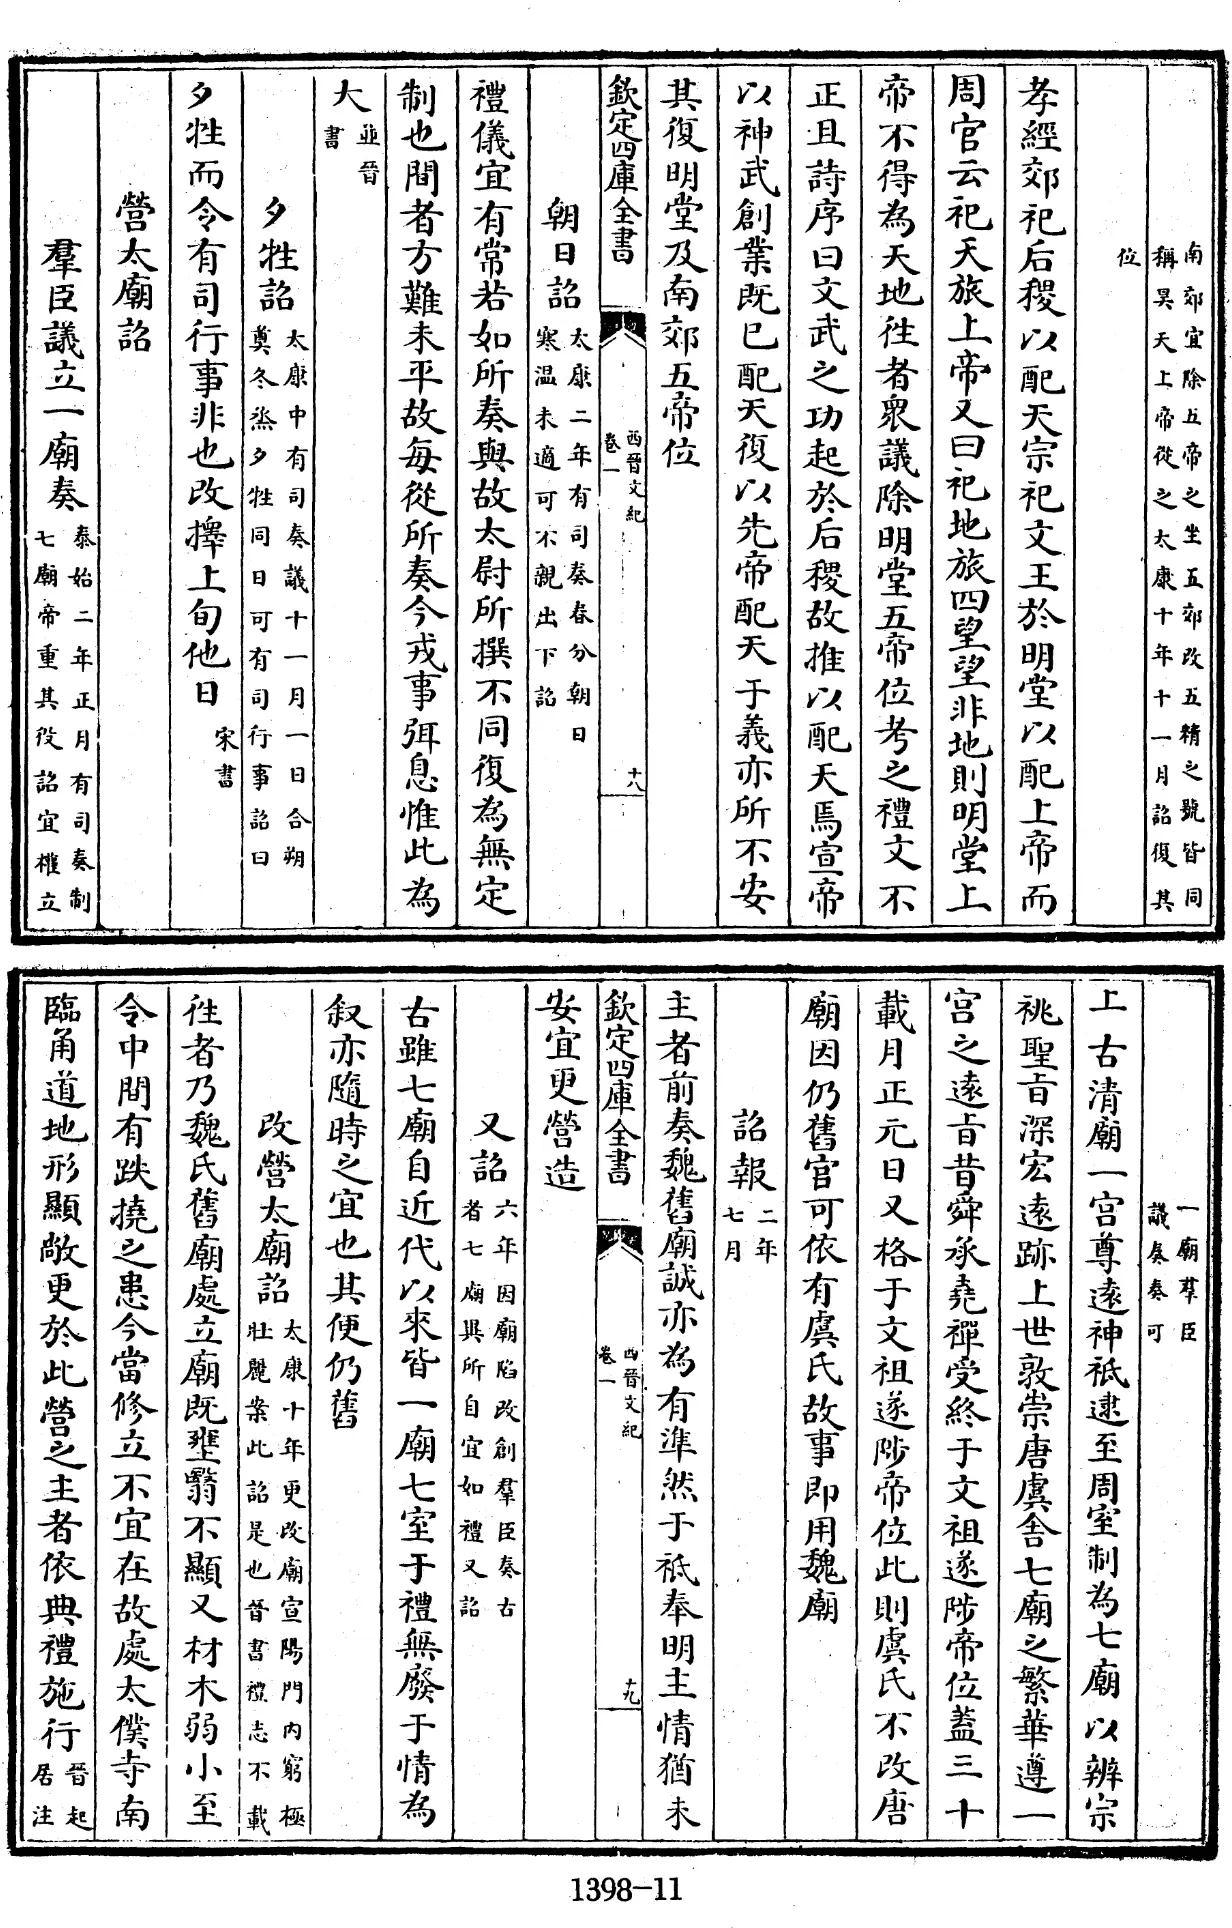 南郊宜除五帝之坐五郊改五精之號皆同
稱昊天上帝從之太康十年十一月詔復其
位
孝經郊祀后稷以配天宗祀文王於明堂以配上帝而
周官云祀天旅上帝又曰祀地旅四望望非地則明堂上
帝不得為天地往者衆議除明堂五帝位考之禮文不
正且詩序曰文武之功起於后稷故推以配天焉宣帝
以神武創業既已配天復以先帝配天于義亦所不安
其復明堂及南郊五帝位
欽定四庫全書
西晉文紀
卷一
十八
朝日詔
太康二年有司奏春分朝日
寒温未適可不親出下詔
禮儀宜有常若如所奏與故太尉所撰不同復為無定
制也間者方難未平故每從所奏今戎事弭息惟此為
大
並晉
書
夕牲詔
太康中有司奏議十一月一日合朔
奠冬烝夕牲同日可有司行事詔曰
夕牲而令有司行事非也改擇上旬他日
宋書
營太廟詔
羣臣議立一廟奏
泰始二年正月有司奏制
七廟帝重其役詔宜權立
一廟羣臣
議奏奏可
上古清廟一宫尊遠神祇逮至周室制為七廟以辨宗
祧聖旨深宏遠跡上世敦崇唐虞舍七廟之繁華遵一
宫之遠旨昔舜承堯禪受終于文祖遂陟帝位蓋三十
載月正元日又格于文祖遂陟帝位此則虞氏不改唐
廟因仍舊官可依有虞氏故事即用魏廟
詔報
二年
七月
主者前奏魏舊廟誠亦為有準然于祇奉明主情猶未
欽定四庫全書
西晉文紀
卷一
十九
安宜更營造
又詔
六年因廟陷改創羣臣奏古
者七廟異所自宜如禮又詔
古雖七廟自近代以來皆一廟七室于禮無廢于情為
叙亦隨時之宜也其便仍舊
改營太廟詔
太康十年更改廟宣陽門内窮極
壯麗案此詔是也晉書禮志不載
往者乃魏氏舊廟處立廟既壅翳不顯又材木弱小至
令中間有跌撓之患今當修立不宜在故處太僕寺南
臨甬道地形顯敞更於此營之主者依典禮施行
晉起
居注
1398-11